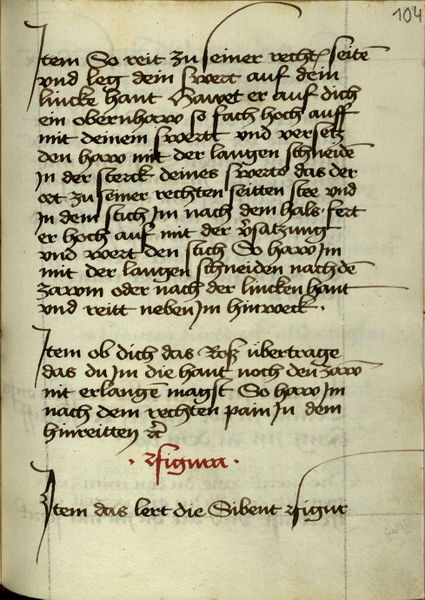 104
Item So reit zu seiner recht seite
vnd leg dein swert auf dem
lincke hant Hawet er auf dich
ein obernhaw so fach hoch auff
mit deinem swertt vnd versetz
den haw mit der langen schneide
In der sterck deines swerts das der
ort zu seiner rechten seitten stee vnd
In dem stich Im nach dem hals fert
er hoch auf mit der v̄satzung
vnd wert den stich So haw Im
mit der langen schneiden nach dē
zawm oder nach der lincken hant
vnd reitt neben Im hinweck .
Item ob dich das Roß übertrage
das du Im die hant noch den zaw̄
nit erlangē magst So haw Im
nach dem rechten pain In dem
hinreitten ꝛc̄
· figura ·
Item das lert die Sibent figur